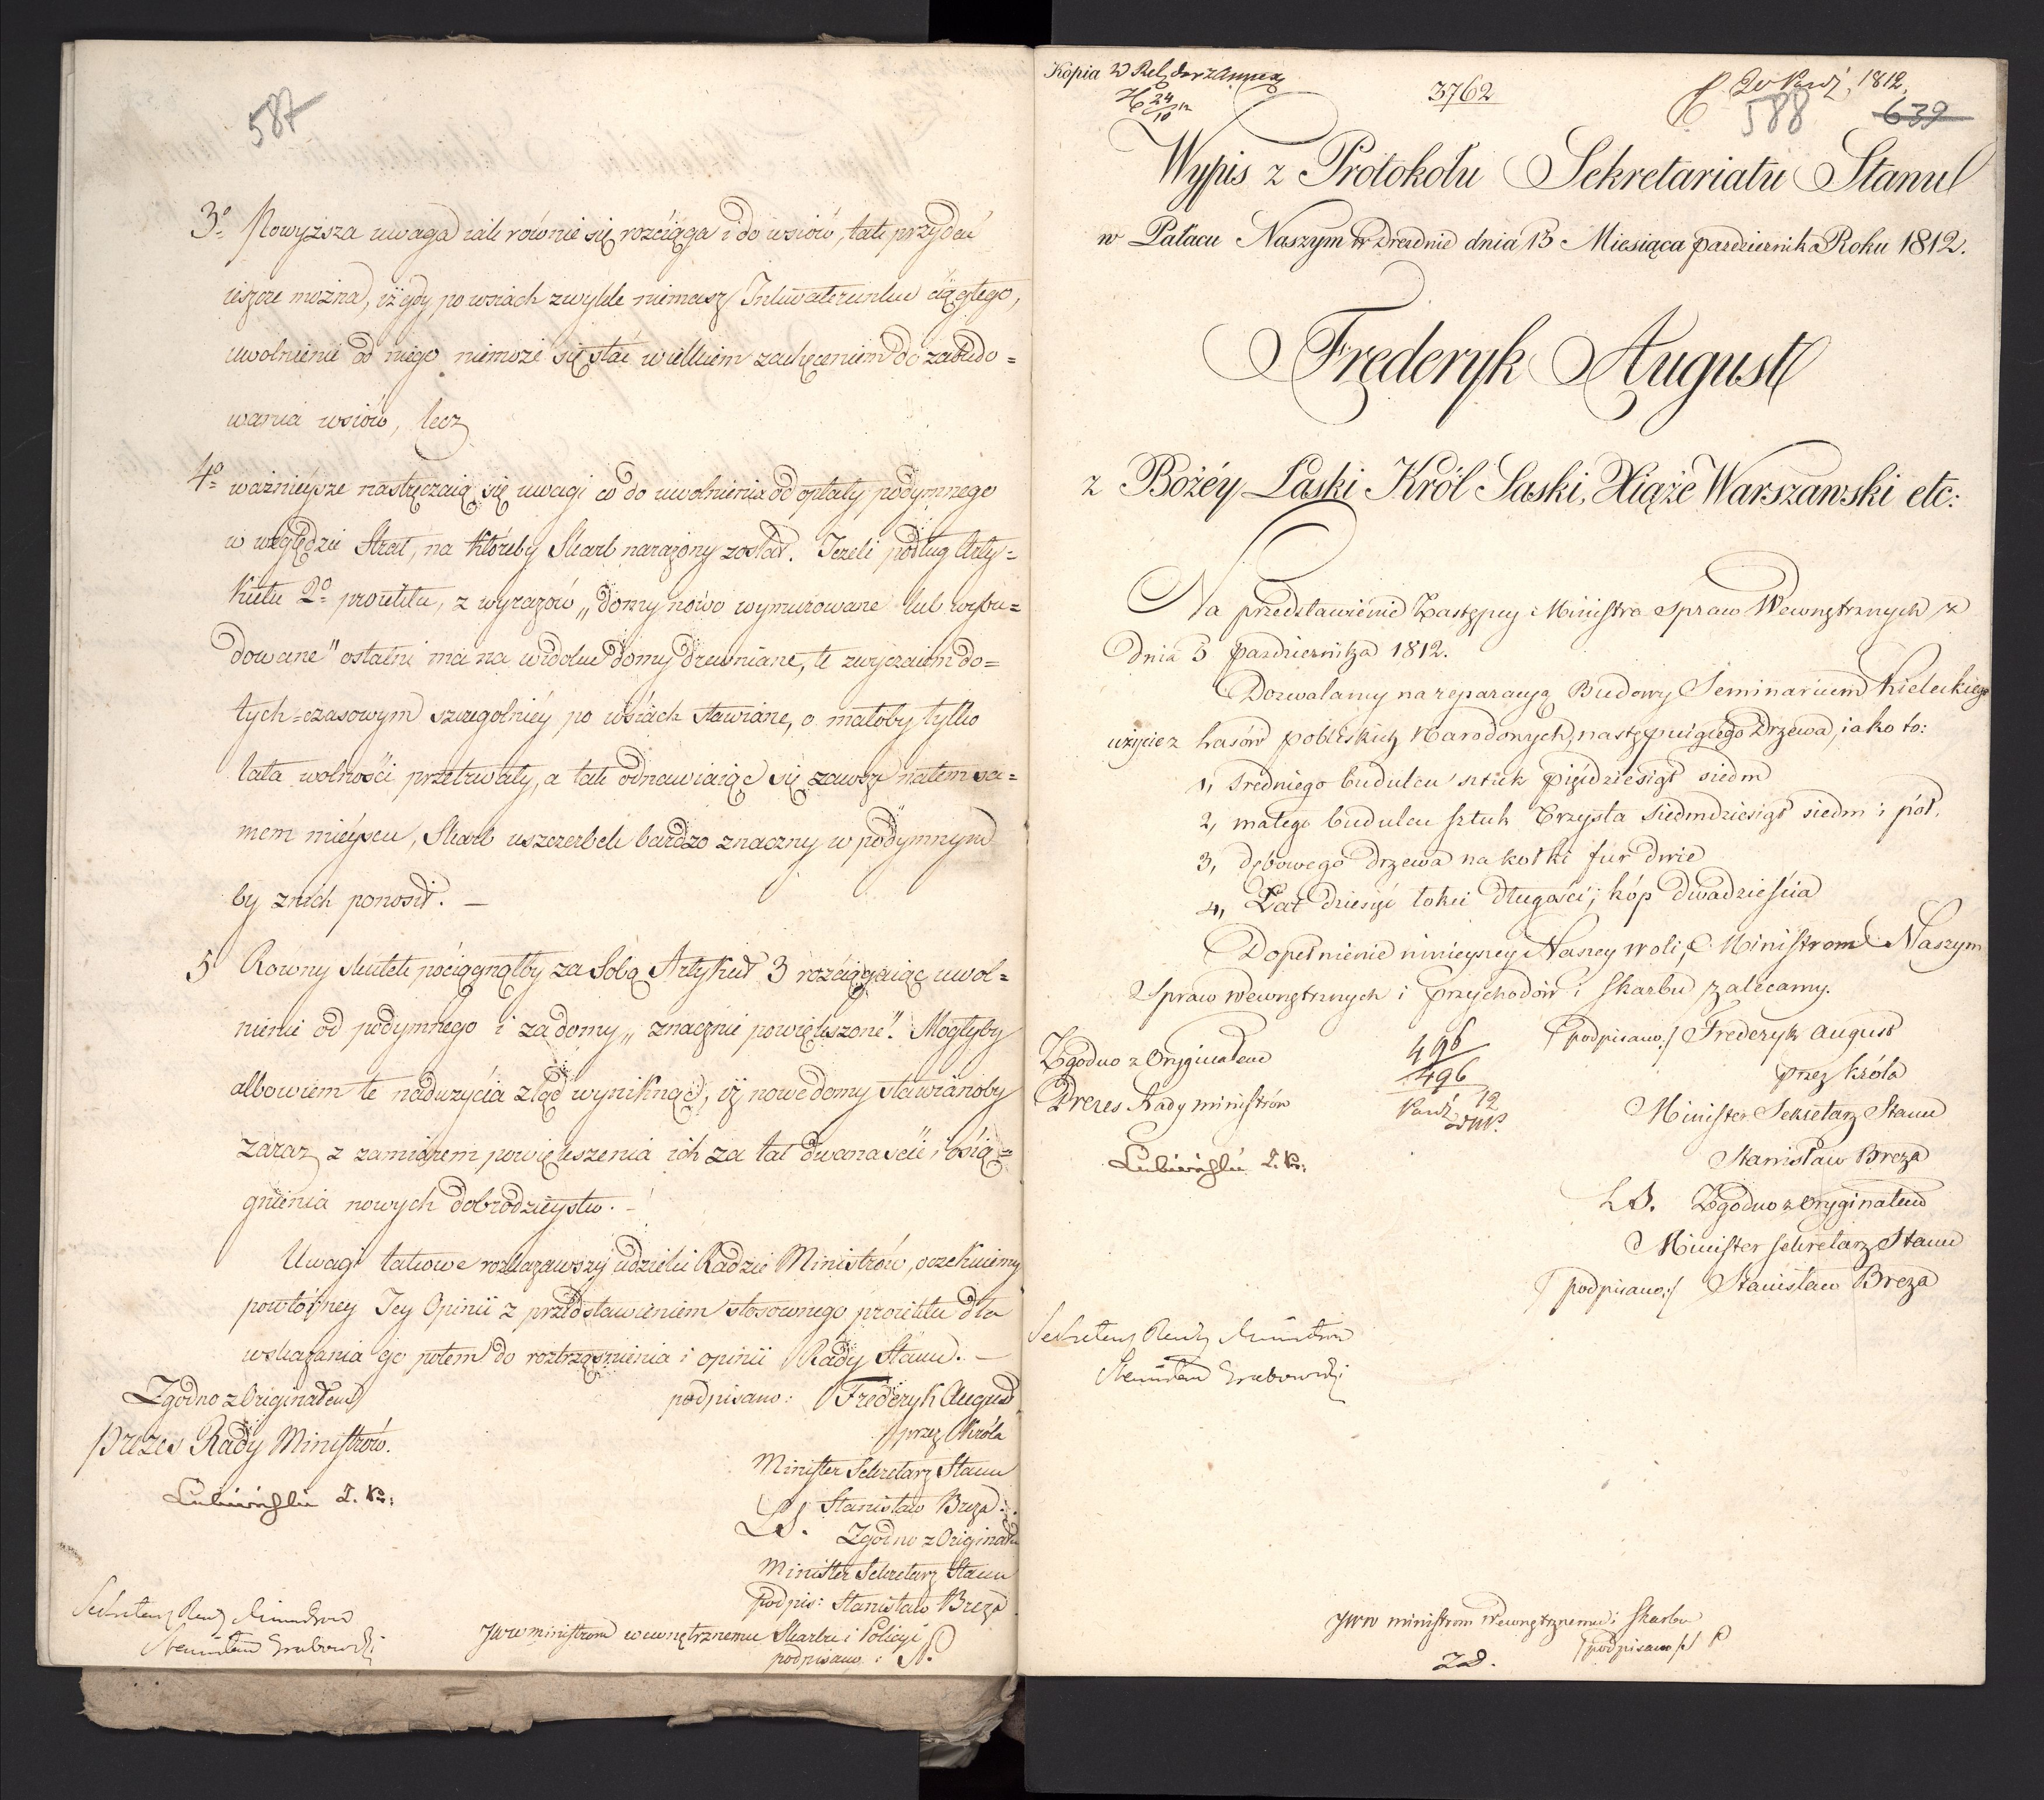 587
3º Powyższa uwaga iak równie się rozciąga i do wsiów, tak przydać
ieszcze można, iż gdy po wsiach zwykle niemasz Inkwaterunku ciągłego,
uwolnienie od niego niemoże się stać wielkiem zachęceniem do zabudo=
wania wsiów, lecz
4º ważnieysze nastręczaią się uwagi co do uwolnienia od opłaty podymnego
w względzie Strat, na któreby Skarb narażony został. Jeżeli podług Arty=
kułu 2º proiektu, z wyrazów „domy nowo wymurowane lub wybu=
dowane" ostatni ma na widoku domy drewniane, te zwyczaiem do=
tych=czasowym szczególniéy po wsiach stawiane, o małoby tylko
lata wolności przetrwały, a tak odnawiaiąc się zawsze na tem sa=
mem mieyscu, Skarb uszczerbek bardzo znaczny w podymnym
by z nich ponosił. —
5 Rowny skutek pociągnąłby za Sobą Artykuł 3 rozciągaiąc uwol=
nienie od podymnego i za domy „znacznie powiększone". Mogłyby
albowiem te nadużycia ztąd wyniknąć, iż nowe domy stawianoby
zaraz z zamiarem powiększenia ich za lat dwanaście i osią=
gnienia nowych dobrodzieystw. —
Uwagi takowe rozkazawszy udzielić Radzie Ministrów, oczekuiemy
powtórney Jey Opinii z przedstawieniem stosownego proiektu dla
wskazania go potem do roztrząśnienia i opinii Rady Stanu. —
Zgodno z Originałem
podpisano: Frederyk August
Prezes Rady Ministrów.
przez Króla
Minister Sekretarz Stanu
Stanisław Breza
L.S. Zgodno z Originałem
Minister Sekretarz Stanu
podpis: Stanisław Breza
Sekretarz Rady Ministrów
Stanisław Grabowski
JWW ministrom wewnętrznemu Skarbu i Policyi
podpisano:
Kopia
3762
1812
588
639
Wypis z Protokołu Sekretariatu Stanu
w Pałacu Naszym w Dreźnie dnia 13 Miesiąca października Roku 1812.
Frederyk August
z Bożéy Łaski Król Saski, Xiąże Warszawski etc:
Na przedstawienie Zastępcy Ministra Spraw Wewnętrznych z
Dnia 3 października 1812.
Dozwalamy na reparacyą Budowy Seminarium Kieleckiego
użycie z Lasów pobliskich Narodowych, następuiącego Drzewa, iako to:
1, średniego budulcu sztuk pięćdziesiąt siedm
2, małego budulcu sztuk Trzysta siedmdziesiąt siedm i pół,
3, dębowego drzewa na kołki fur dwie
4, Łat dziesięć łokci długości, kóp dwadzieścia
Dopełnienie ninieyszey Naszey woli, Ministrom Naszym
Spraw wewnętrznych i przychodów i Skarbu zalecamy.
Zgodno z Oryginałem
496
podpisano:/ Frederyk August
496
przez Króla
Prezes Rady ministrów
12
Minister Sekretarz Stanu
Stanisław Breza
L.S. Zgodno z Oryginałem
Minister Sekretarz Stanu
podpisano:/ Stanisław Breza
Sekretarz Rady Ministrów
Stanisław Grabowski
JWW ministrom Wewnętrznemu i Skarbu
podpisano